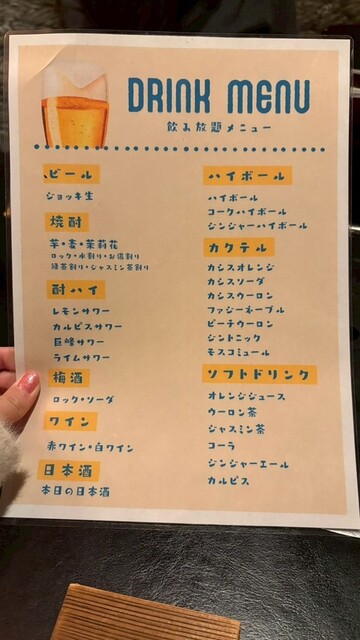 DRINK MENU
飲み放題メニュー
ビール
ジョッキ生
焼酎
芋・麦・茉莉花
ロック・水割り・お湯割り
緑茶割り・ジャスミン茶割り
酎ハイ
レモンサワー
カルピスサワー
巨峰サワー
ライムサワー
梅酒
ロック・ソーダ
ワイン
赤ワイン・白ワイン
日本酒
本日の日本酒
ハイボール
ハイボール
コークハイボール
ジンジャーハイボール
カクテル
カシスオレンジ
カシスソーダ
カシスウーロン
ファジーネーブル
ピーチウーロン
ジントニック
モスコミュール
ソフトドリンク
オレンジジュース
ウーロン茶
ジャスミン茶
コーラ
ジンジャーエール
カルピス